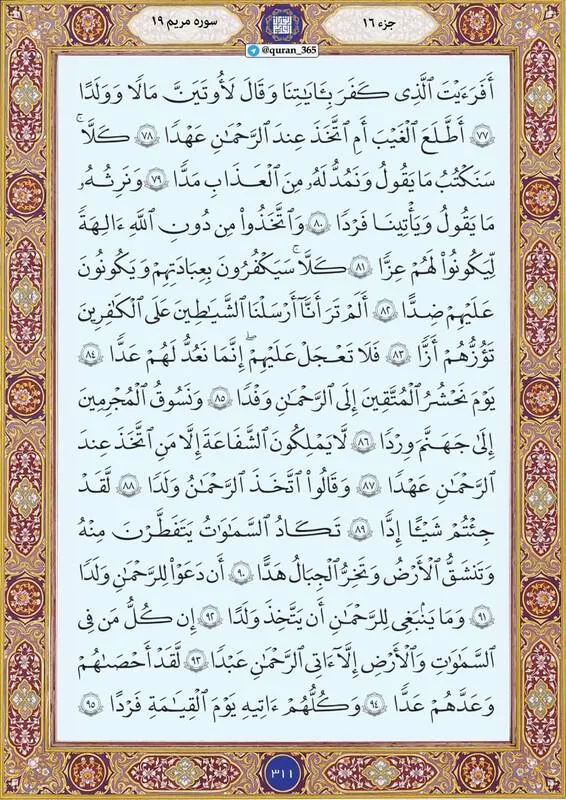 جزء ۱۶
سوره مریم ۱۹
@quran_365
أَفَرَءَيْتَ ٱلَّذِى كَفَرَ بِـَٔايَـٰتِنَا وَقَالَ لَأُوتَيَنَّ مَالًا وَوَلَدًا
٧٧ أَطَّلَعَ ٱلْغَيْبَ أَمِ ٱتَّخَذَ عِندَ ٱلرَّحْمَـٰنِ عَهْدًا ٧٨ كَلَّا ۚ
سَنَكْتُبُ مَا يَقُولُ وَنَمُدُّ لَهُۥ مِنَ ٱلْعَذَابِ مَدًّا ٧٩ وَنَرِثُهُۥ
مَا يَقُولُ وَيَأْتِينَا فَرْدًا ٨٠ وَٱتَّخَذُوا۟ مِن دُونِ ٱللَّهِ ءَالِهَةً
لِّيَكُونُوا۟ لَهُمْ عِزًّا ٨١ كَلَّا ۚ سَيَكْفُرُونَ بِعِبَادَتِهِمْ وَيَكُونُونَ
عَلَيْهِمْ ضِدًّا ٨٢ أَلَمْ تَرَ أَنَّآ أَرْسَلْنَا ٱلشَّيَـٰطِينَ عَلَى ٱلْكَـٰفِرِينَ
تَؤُزُّهُمْ أَزًّا ٨٣ فَلَا تَعْجَلْ عَلَيْهِمْ ۖ إِنَّمَا نَعُدُّ لَهُمْ عَدًّا ٨٤
يَوْمَ نَحْشُرُ ٱلْمُتَّقِينَ إِلَى ٱلرَّحْمَـٰنِ وَفْدًا ٨٥ وَنَسُوقُ ٱلْمُجْرِمِينَ
إِلَىٰ جَهَنَّمَ وِرْدًا ٨٦ لَّا يَمْلِكُونَ ٱلشَّفَـٰعَةَ إِلَّا مَنِ ٱتَّخَذَ عِندَ
ٱلرَّحْمَـٰنِ عَهْدًا ٨٧ وَقَالُوا۟ ٱتَّخَذَ ٱلرَّحْمَـٰنُ وَلَدًا ٨٨ لَّقَدْ
جِئْتُمْ شَيْـًٔا إِدًّا ٨٩ تَكَادُ ٱلسَّمَـٰوَٰتُ يَتَفَطَّرْنَ مِنْهُ
وَتَنشَقُّ ٱلْأَرْضُ وَتَخِرُّ ٱلْجِبَالُ هَدًّا ٩٠ أَن دَعَوْا۟ لِلرَّحْمَـٰنِ وَلَدًا
٩١ وَمَا يَنۢبَغِى لِلرَّحْمَـٰنِ أَن يَتَّخِذَ وَلَدًا ٩٢ إِن كُلُّ مَن فِى
ٱلسَّمَـٰوَٰتِ وَٱلْأَرْضِ إِلَّآ ءَاتِى ٱلرَّحْمَـٰنِ عَبْدًا ٩٣ لَّقَدْ أَحْصَىٰهُمْ
وَعَدَّهُمْ عَدًّا ٩٤ وَكُلُّهُمْ ءَاتِيهِ يَوْمَ ٱلْقِيَـٰمَةِ فَرْدًا ٩٥
۳۱۱